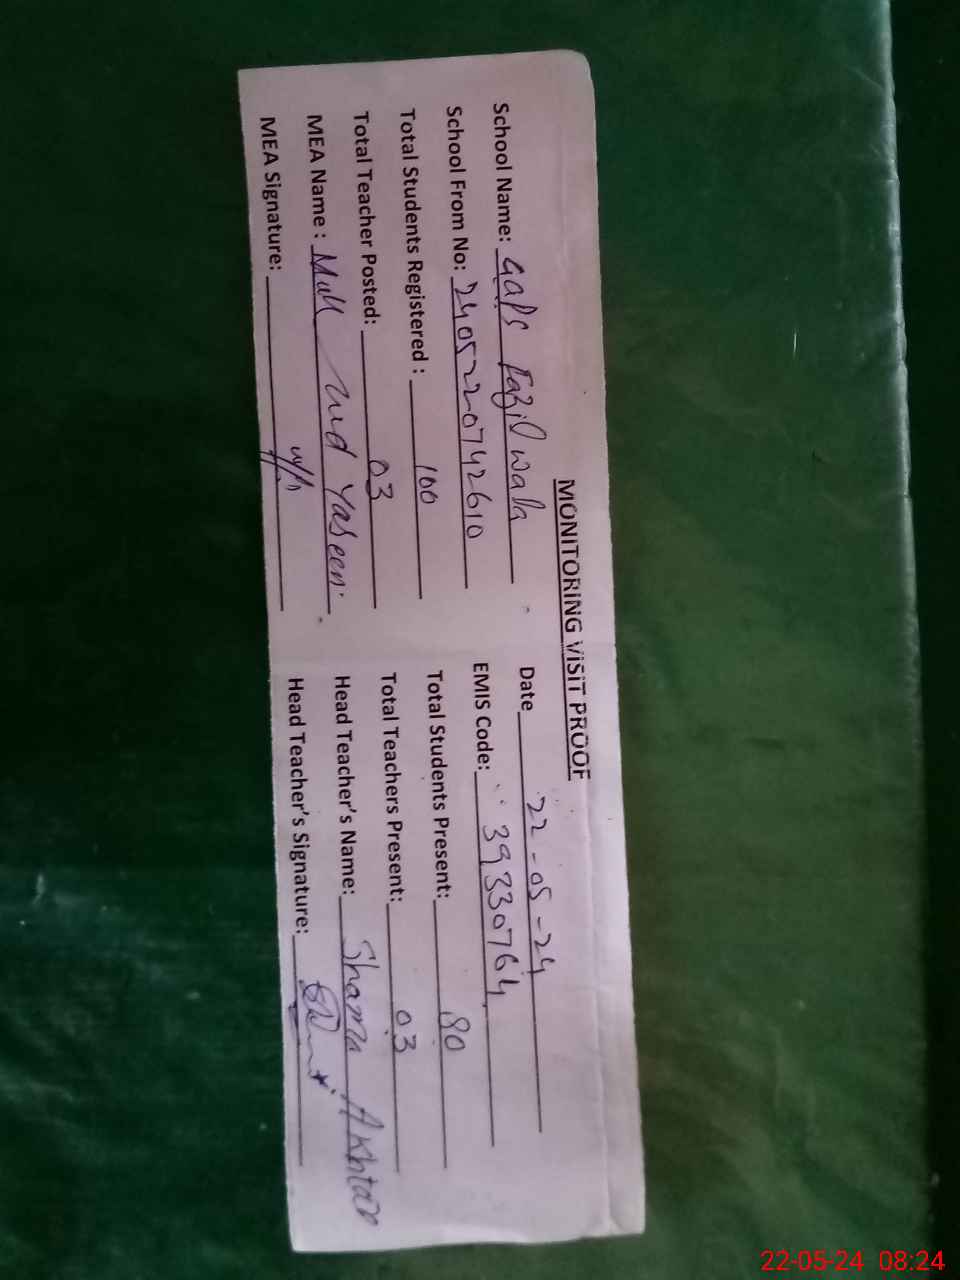 MONITORING VISIT PROOF
School Name: GAPS Fazil wala Date 22-05-24
School From No: 2405220742610 EMIS Code: 39330764
Total Students Registered : 100 Total Students Present: 80
Total Teacher Posted: 03 Total Teachers Present: 03
MEA Name : Yaseen Head Teacher's Name: Shama Akhtar
MEA Signature: Head Teacher's Signature:
22-05-24 08:24